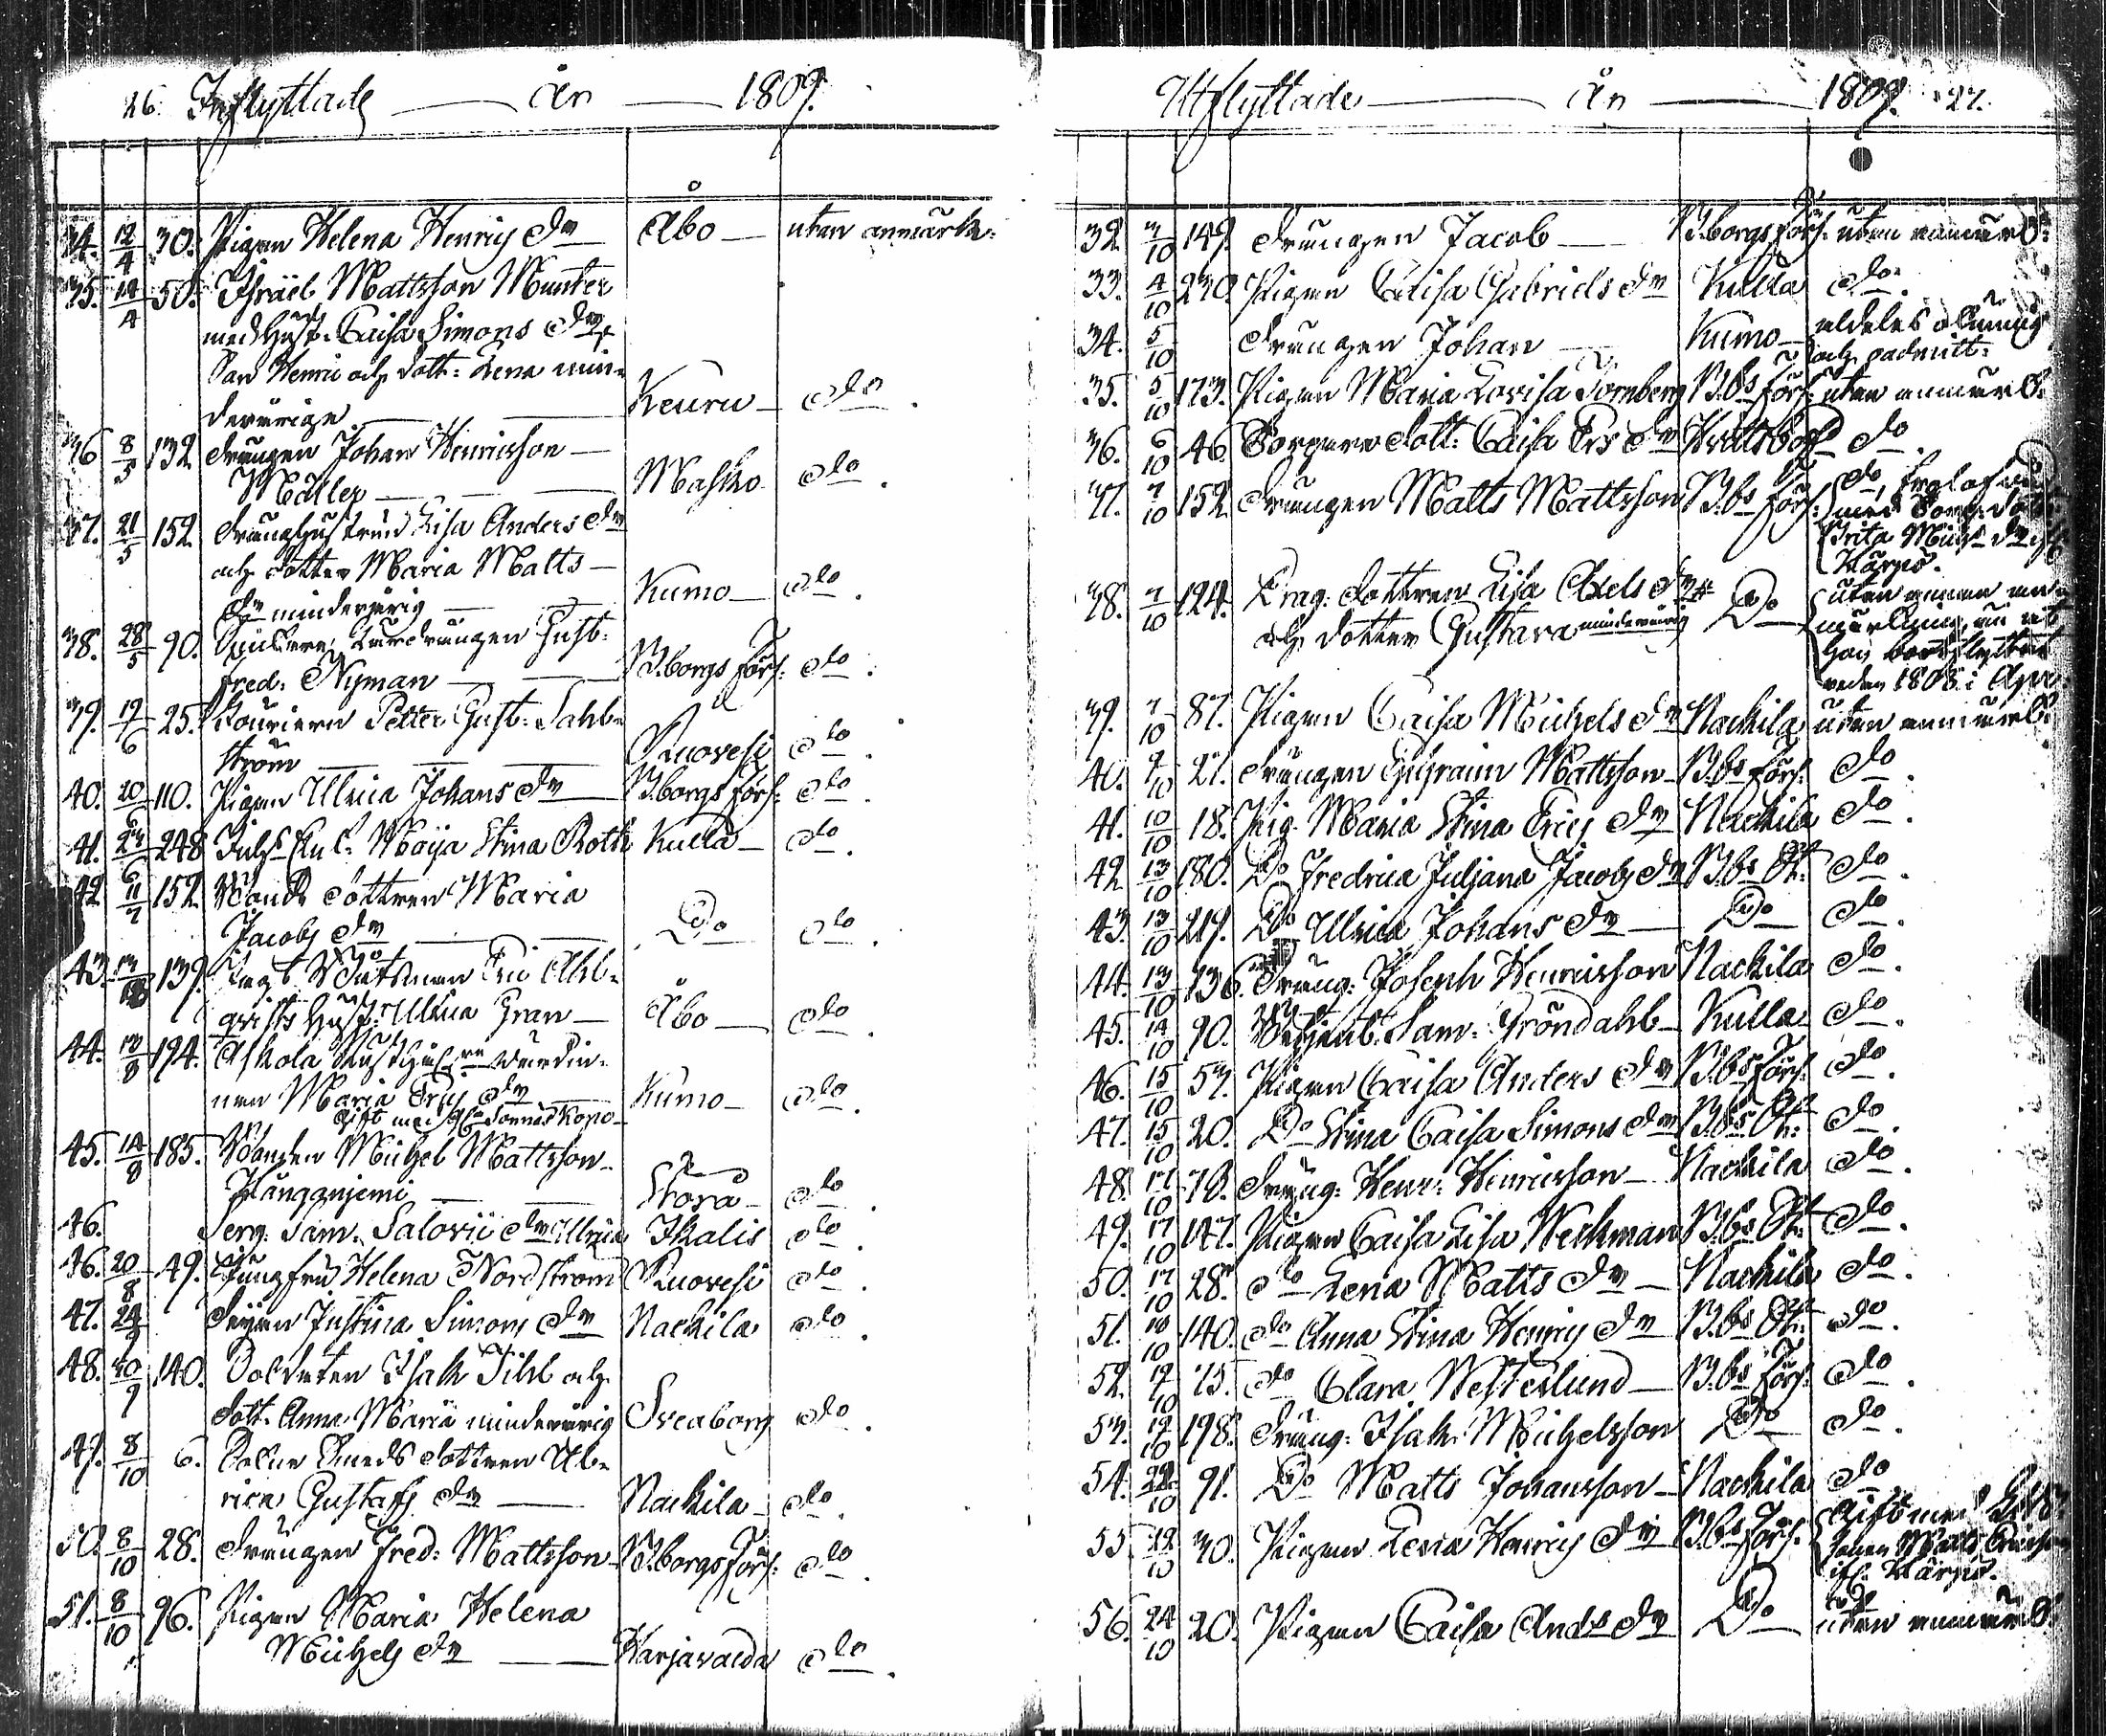 26. Inflyttade — År — 1809.
34. 12/4 30. Pigan Helena Henrics dr — Åbo — utan anmärk:
35. 14/4 50. Israël Mattsson Munter
med Hust. Caisa Simons dr
Son Henric och dott: Lena min-
derårige — Keuru — do.
36 8/5 132 Drengen Johan Henricsson —
Maller — Masko do.
37. 21/5 152 Dräng Hustrun Lisa Anders dr
och dotter Maria Matts —
dr minderårig — Kumo — do.
38. 28/5 90. drengen Gust:
Fred: Nyman — B:borgs förs: do.
39. 19/6 25. Petter Gust: Sahl-
ström — Ruovesi do.
40. 20/6 110. Pigan Ulrica Johans dr — B:borgs förs: do.
41. 24/6 248 Maija Stina Roth Kulla — do.
42. 11/7 152. Bonde dottren Maria
Jacobs dr — Do do.
43. 139. Båtsman Eric Ahl-
qvists Hust: Ulrica Gran — Åbo — do.
44. 194. Askola
nan Maria Erics dr — Kumo — do.
Gift med Sonen
45. 14/8 185. Bonden Michel Mattsson —
Storå — do.
46. Serg: Sam. Salovii dr Ulrica Ikalis do.
46. 20/8 49. Jungfru Helena Nordström Ruovesi do.
47. 24 Pigan Justina Simons dr Nackila do.
48. 30/9 140. Soldaten Isak Pihl och
dott. Anna Maria minderårig Sveaborg do.
49. 8/10 6. Smeds dottren Ul-
rica Gustafs dr — Nackila — do.
50. 8/10 28. Drengen Fred: Mattsson — B:borgs förs: do.
51. 8/10 96. Pigan Maria Helena
Michels dr — Harjavalda do.
Utflyttade — År — 1809. 27.
32. 3/10 149. Drengen Jacob — B:borgs förs: utan anmärk:
33. 4/10 230. Pigan Caisa Gabriels dr Kulla do.
34. 5/10 Drengen Johan — Kumo — aldeles okunnig
och oadmitt:
35. 5/10 173. Pigan Maria Lovisa Törnberg B:bs förs: utan anmärk:
36. 6/10 46. Torpare dott: Caisa Ers dr do
37. 7/10 152. Drengen Matts Mattsson B:bs förs: do,
med dott:
Brita Mich: dr
38. 7/10 124. dottren Lisa Axels dr Do utan annan an-
och dotter Gustava minderårig märkning, än at
hon bortflyttat
redan 1808 i Apr.
39. 7/10 87. Pigan Caisa Michels dr Nackila utan anmärk:
40. 9/10 27. Drengen Ephraim Mattsson — B:bs förs: do.
41. 10/10 18. Pig. Maria Stina Erics dr Nackila do.
42 13/10 180. Do Fredrica Juliana Jacobs dr B:bs St: do.
43. 13/10 219. Do Ulrica Johans dr — Do do.
44. 13/10 136. Dreng: Joseph Henricsson Nackila do.
45. 14/10 90. Sam: Gröndahl — Kulla do.
46. 15/10 53. Pigan Caisa Anders dr B:bs förs: do.
47. 15/10 20. Do Stina Caisa Simons dr B:bs St: do.
48. 17/10 73. Dreng: Henr: Henricsson — Nackila do.
49. 17/10 147. Pigan Caisa Lisa Weckman B:bs St: do.
50. 17/10 28. do Lena Matts dr — Nackila do.
51. 18/10 140. do Anna Stina Henrics dr B:bs St: do.
52. 19/10 75. do Clara Westerlund — B:bs förs: do.
53. 19/10 198. Dreng: Isak Michelsson Do do.
54. 22/10 91. Do Matts Johansson — Nackila do
55 22/10 30. Pigan Lena Henrics dr B:bs förs: Gift med
Matts Ericsson
56. 24/10 20. Pigan Caisa Ands dr Do utan anmärk.